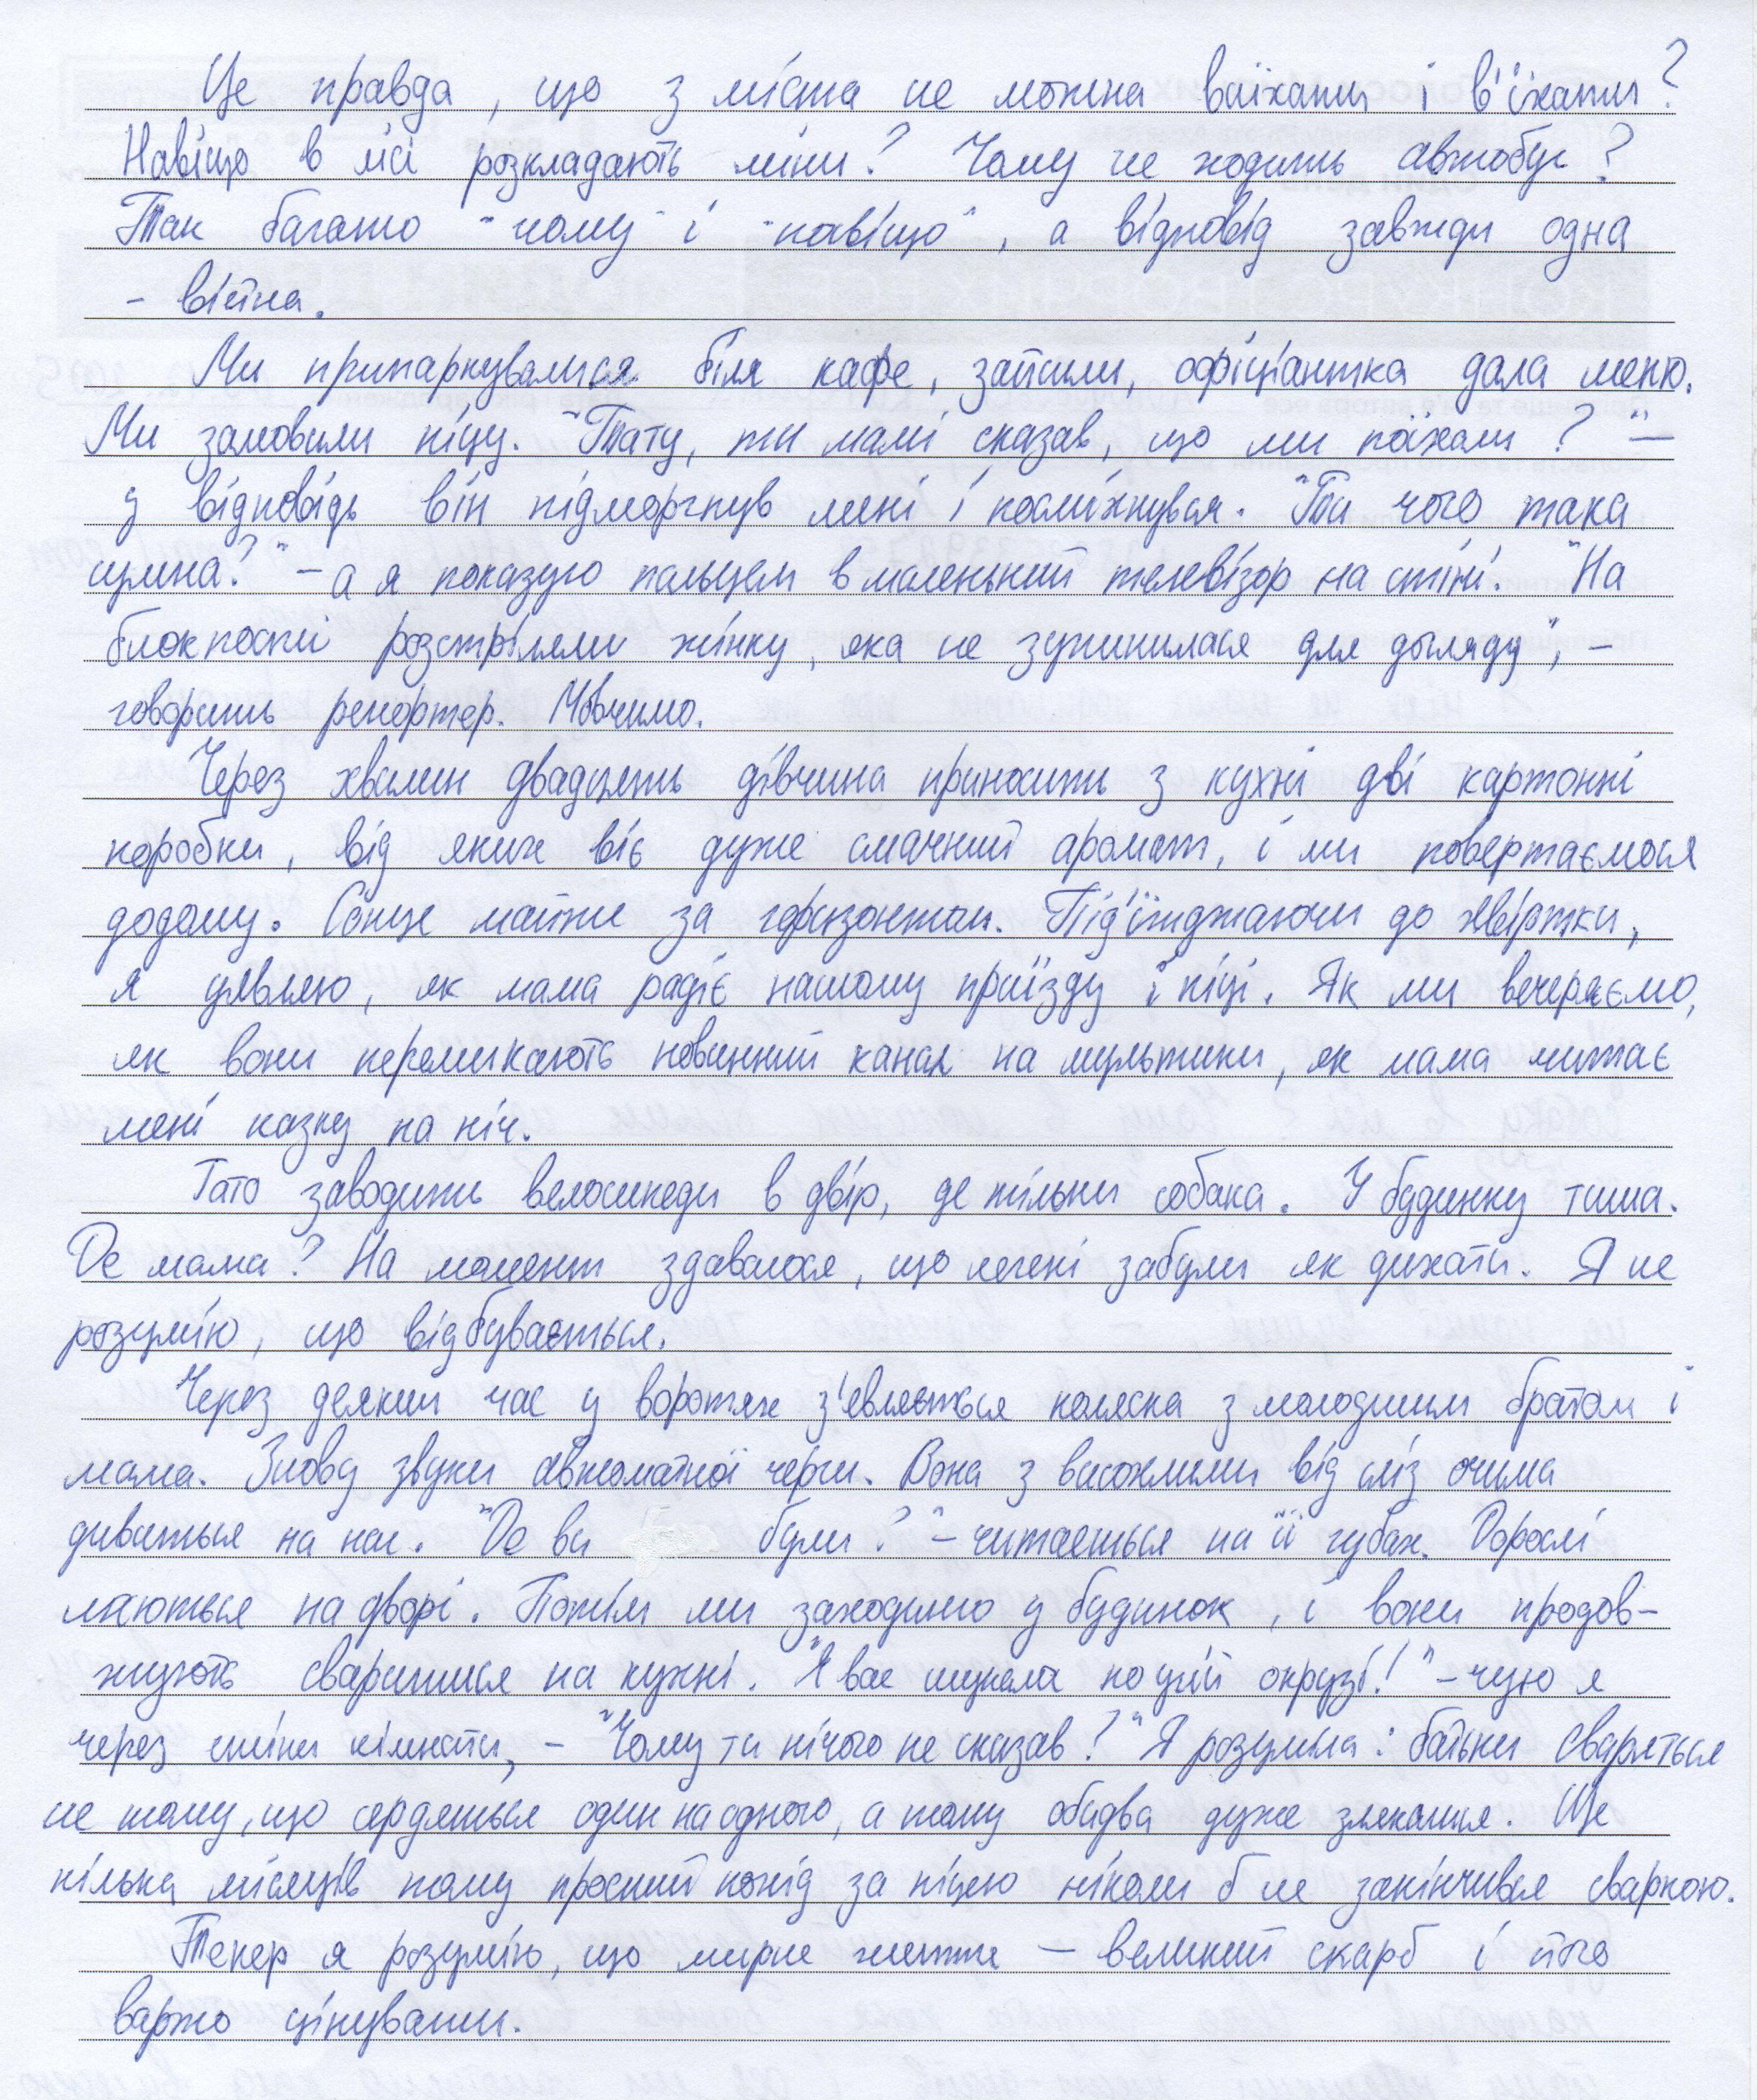 Це правда, що з міста не можна виїхати і в'їхати?
Навіщо в лісі розкладають міни? Чому не ходить автобус?
Так багато "чому" і "навіщо", а відповідь завжди одна
- війна.
Ми припаркувалися біля кафе, зайшли, офіціантка дала меню.
Ми замовили піцу. "Тату, ти мамі сказав, що ми поїхали?" –
у відповідь він підморгнув мені і посміхнувся. "Ти чого така
сумна?" – а я показую пальцем в маленький телевізор на стіні. "На
блокпості розстріляли жінку, яка не зупинилася для догляду", –
говорить репортер. Мовчимо.
Через хвилин двадцять дівчина приносить з кухні дві картонні
коробки, від яких віє дуже смачний аромат, і ми повертаємося
додому. Сонце майже за горизонтом. Під'їжджаючи до хвіртки,
я уявляю, як мама радіє нашому приїзду і піці. Як ми вечеряємо,
як вони перемикають новинний канал на мультики, як мама читає
мені казку на ніч.
Тато заводить велосипеди в двір, де тільки собака. У будинку тиша.
Де мама? На момент здавалося, що легені забули як дихати. Я не
розумію, що відбувається.
Через деякий час у воротях з'являється коляска з молодшим братом і
мама. Знову звуки автоматної черги. Вона з висохлими від сліз очима
дивиться на нас. "Де ви були?" – читається на її губах. Дорослі
лаються на дворі. Потім ми заходимо у будинок, і вони продов-
жують сваритися на кухні. "Я вас шукала по усій окрузі!" – чую я
через стіни кімнати, – "Чому ти нічого не сказав?" Я розуміла: батьки сваряться
не тому, що сердяться один на одного, а тому обидва дуже злякалися. Ще
кілька місяців тому простий похід за піцею ніколи б не закінчився сваркою.
Тепер я розумію, що мирне життя – великий скарб і його
варто цінувати.